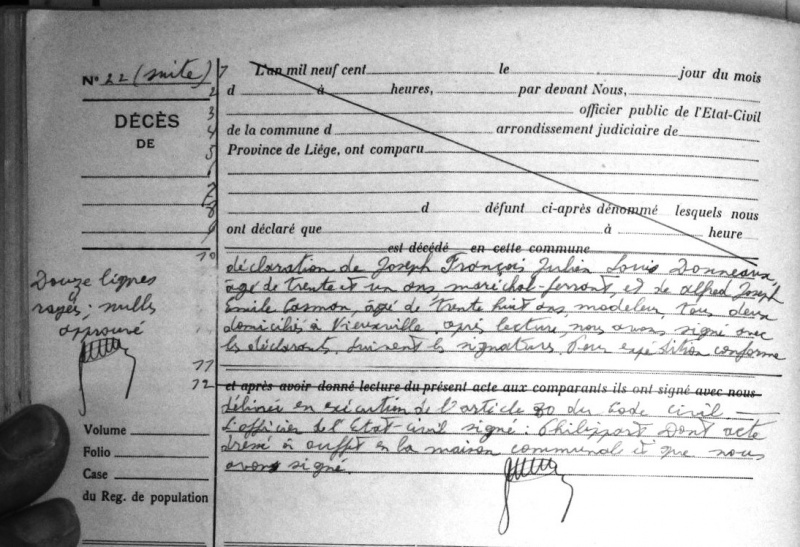 N° 22 (suite)
DÉCÈS
DE
Douze lignes
rayés; nulls
approuvé
Volume
Folio
Case
du Reg. de population
1
2
3
4
5
6
7
8
9
10
11
12
L'an mil neuf cent le jour du mois
d à heures, par devant Nous,
officier public de l'Etat-Civil
de la commune d arrondissement judiciaire de
Province de Liége, ont comparu
d défunt ci-après dénommé lesquels nous
ont déclaré que à heure
est décédé en cette commune
déclaration de Joseph François Julien Louis Donneaux,
âgé de trente et un ans maréchal-ferront, et de Alfred Joseph
Emile Cosmon, âgé de trente huit ans, modeleur, tous deux
domiciliés à Vieuxville, après lecture nous avons signé avec
les déclarants. Suivent les signatures. Pour expédition conforme
et après avoir donné lecture du présent acte aux comparants ils ont signé avec nous
délivrée en exécution de l'article 80 du Code Civil
L'officier de l'Etat-civil signé: Philippart Dont acte
dressé à Ouffet en la maison communal et que nous
avons signé.